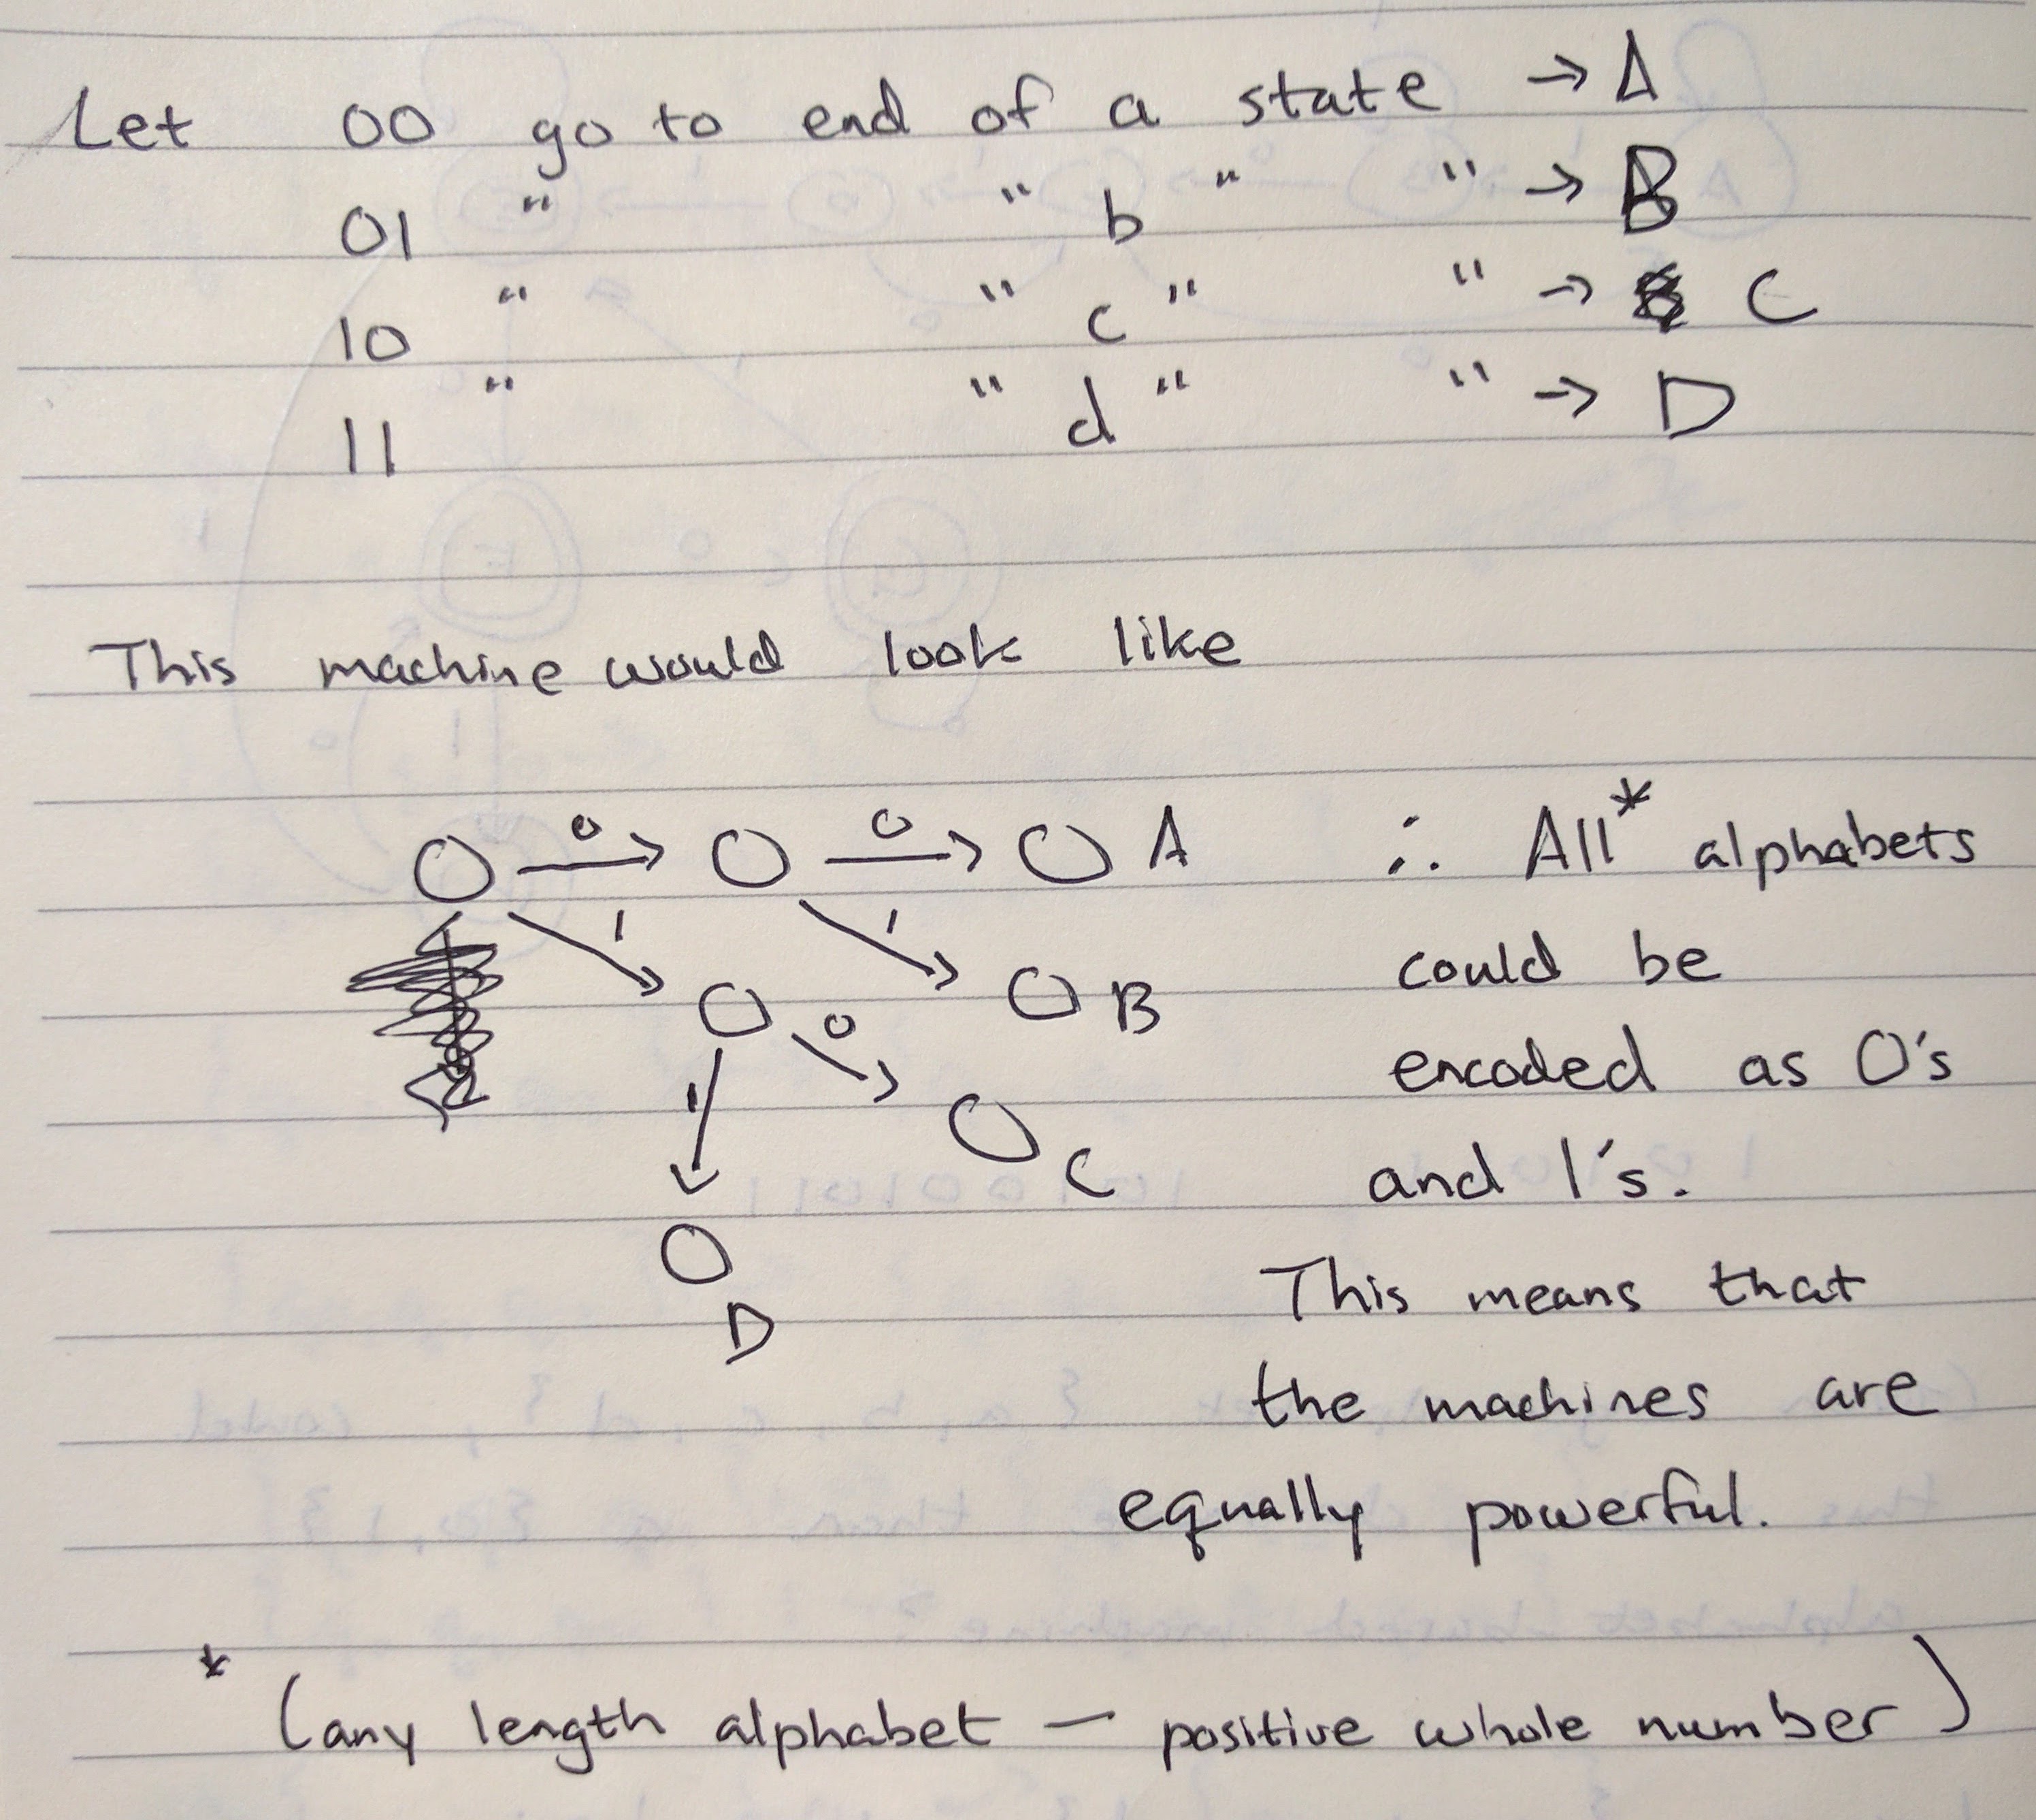 Let 00 go to end of a state → A
01 " " b " " → B
10 " " c " " → C
11 " " d " " → D
This machine would look like
0 0 A ∴ All* alphabets
1 1 could be
B
0 encoded as 0's
1
C and 1's.
D This means that
the machines are
equally powerful.
* (any length alphabet — positive whole number)